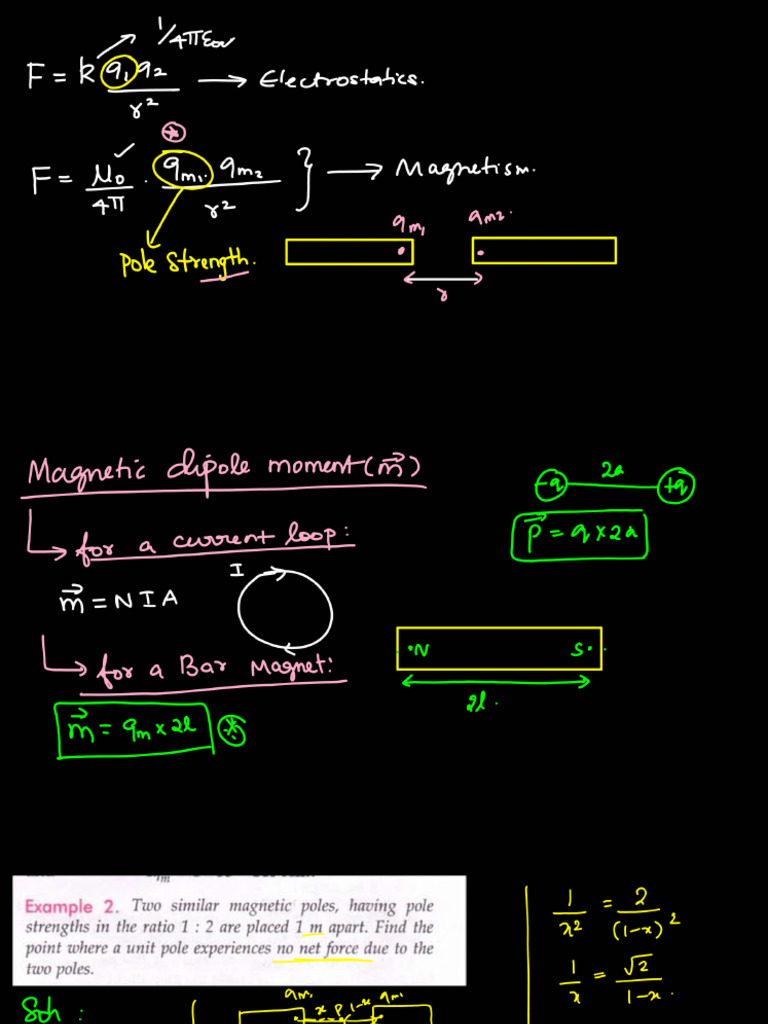 1/4πε₀
F = k q₁q₂ / r² → Electrostatics.
F = μ₀/4π · qm₁ · qm₂ / r² } → Magnetism.
Pole Strength.
qm₁ qm₂.
r
Magnetic dipole moment (m⃗)
2a
-q +q
P⃗ = q × 2a
for a current loop:
I
m⃗ = N I A
for a Bar Magnet:
•N S•
2l.
m⃗ = qm × 2l
Example 2. Two similar magnetic poles, having pole
strengths in the ratio 1 : 2 are placed 1 m apart. Find the
point where a unit pole experiences no net force due to the
two poles.
1/x² = 2/(1-x)²
1/x = √2/1-x.
Soln :
qm₁ qm₁
x P 1-x